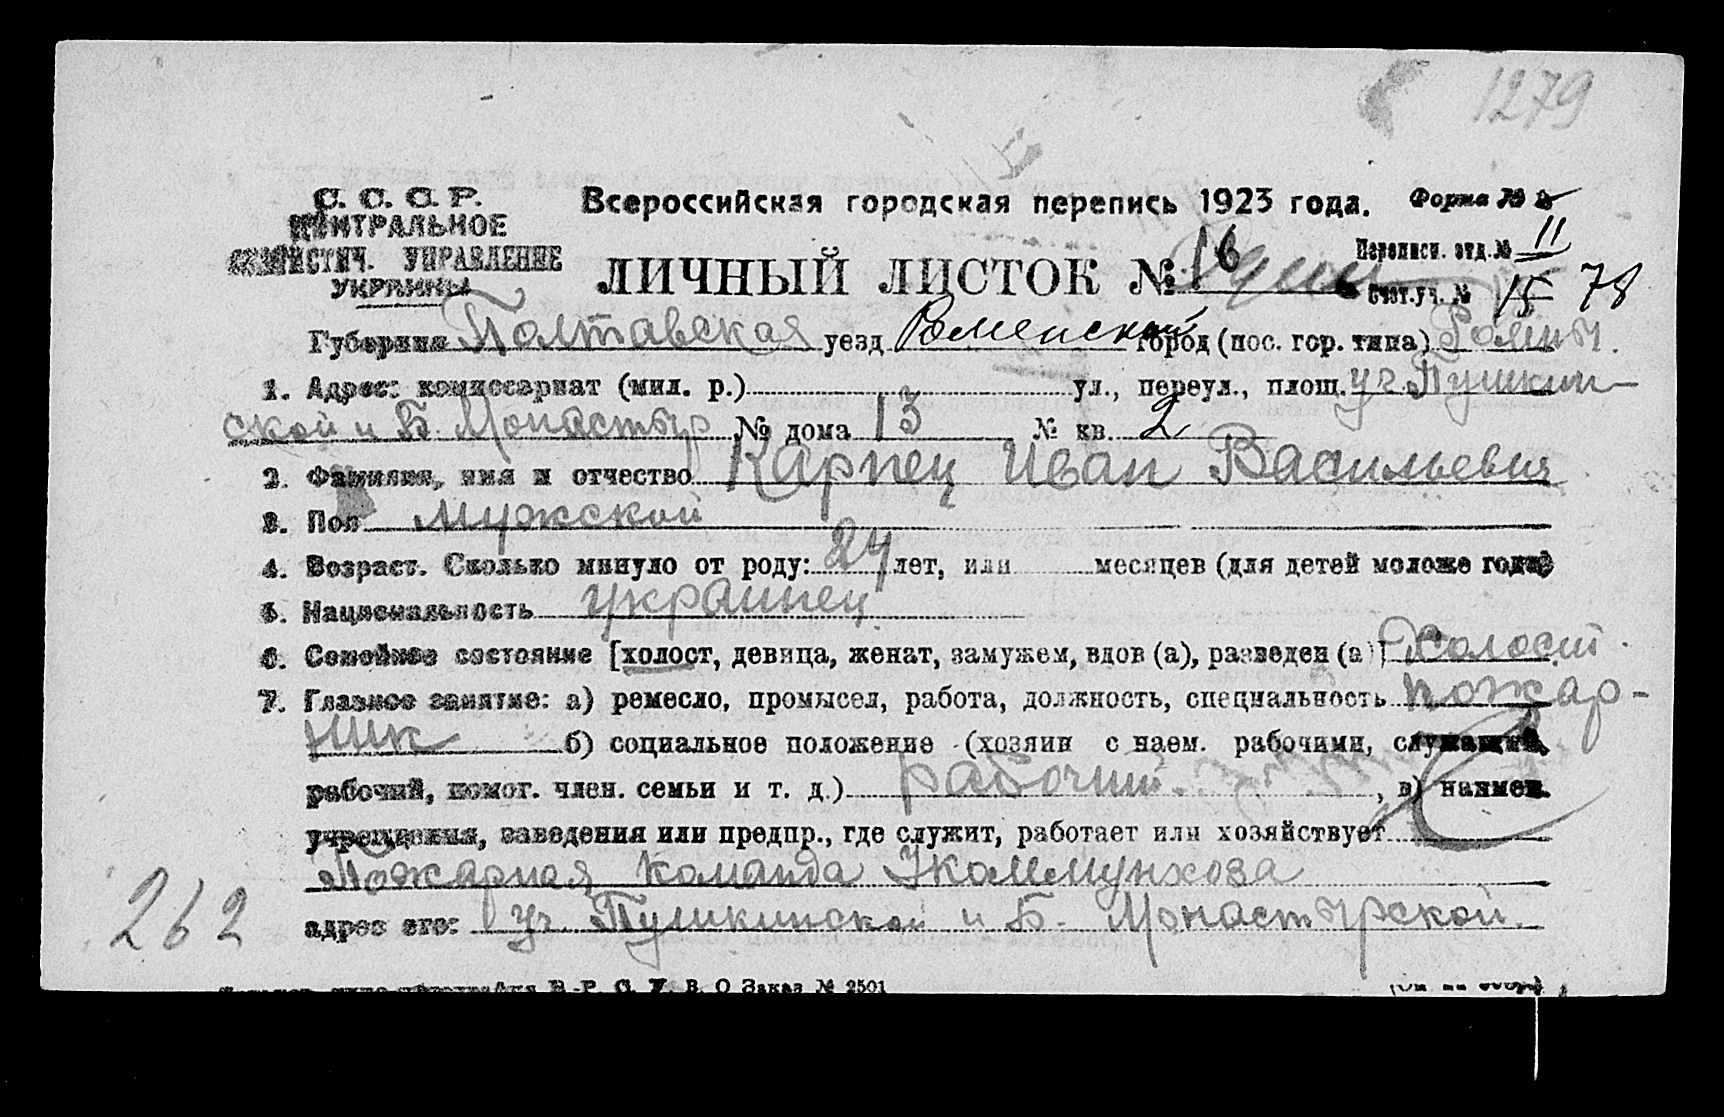 1279
С. С. С. Р.
ЦЕНТРАЛЬНОЕ
СТАТИСТИЧ. УПРАВЛЕНИЕ
УКРАИНЫ
Всероссийская городская перепись 1923 года. Форма №
Переписн. отд. № 11
ЛИЧНЫЙ ЛИСТОК № 16
Счет. уч. № 15 78
Губерния Полтавская уезд Роменский город (пос. гор. типа) Ромны.
1. Адрес: комиссариат (мил. р.) ул., переул., площ. уг. Пушкин-
ской и Б. Монастыр № дома 13 № кв. 2
2. Фамилия, имя и отчество Карпец Иван Васильевич
3. Пол мужской
4. Возраст. Сколько минуло от роду: 24 лет, или месяцев (для детей моложе года)
5. Национальность украинец
6. Семейное состояние [холост, девица, женат, замужем, вдов (а), разведен (а)] Холост.
7. Главное занятие: а) ремесло, промысел, работа, должность, специальность пожар-
ник б) социальное положение (хозяин с наем. рабочими, служащий,
рабочий, помог. член. семьи и т. д.) рабочий , в) наимен.
учреждения, заведения или предпр., где служит, работает или хозяйствует
Пожарная команда Укоммунхоза
262
адрес его: уг. Пушкинской и Б. Монастырской.
В. Р. С. У. В. О Заказ № 2501